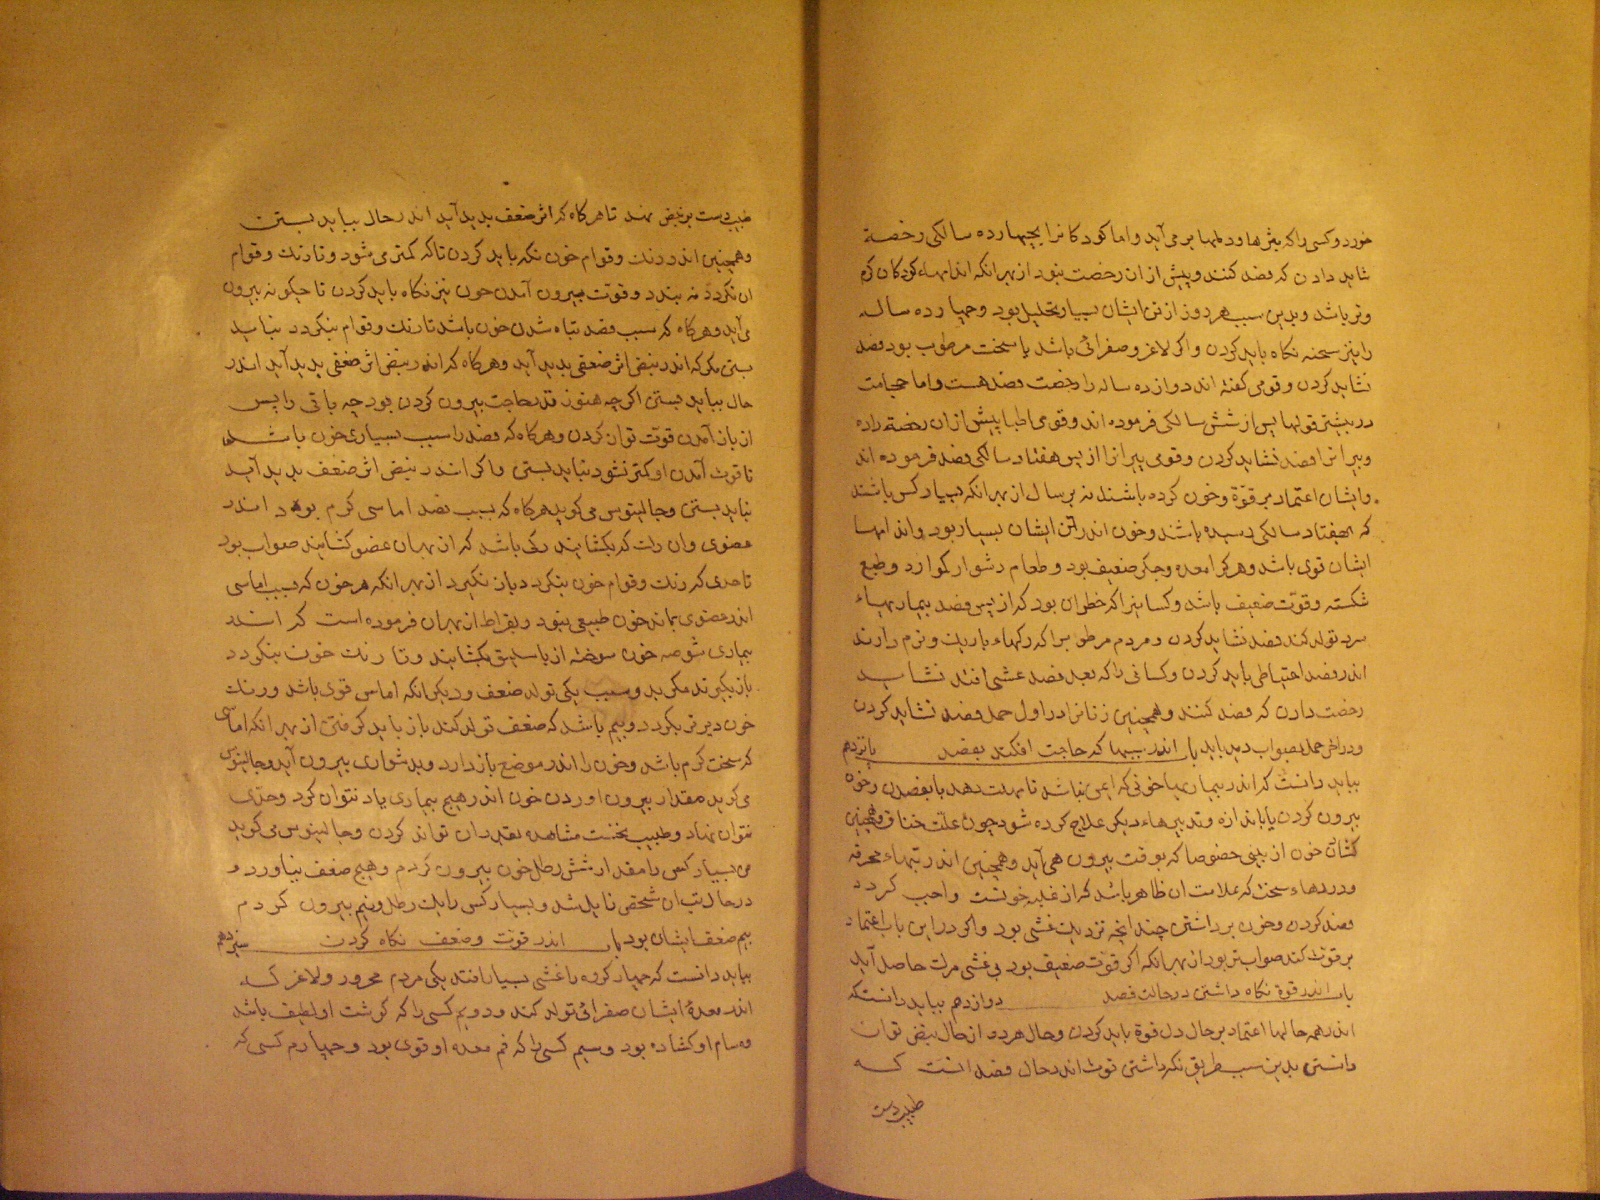 خورد و کسی را که بثرها و دملها بر می آید و اما کودکانرا بچهارده سالکی رخصة
شاید دادن که فصد کنند و پیش از ان رخصت نبود از بهر انکه اندامهاء کودکان کرم
وتر باشد و بدین سبب هر روز از تن ایشان بسیار تحلیل بود و چهارده ساله
را نیز سحنه نکاه باید کردن و اکر لاغر و صفرائی باشد یا سخت مرطوب بود فصد
نشاید کردن و قومی کفته اند دوازده ساله را رخصت فصد هست و اما حجامت
در بیشتر قولها پس از شش سالکی فرموده اند و قومی اطبا پیش از ان رخصة داده
و پیرانرا فصد نشاید کردن و قومی پیرانرا از پس هفتاد سالکی فصد فرموده اند
و ایشان اعتماد بر قوّة و خون کرده باشند نه بر سال از بهر انکه بسیار کس باشند
که بهفتاد سالکی رسیده باشند و خون اندر تن ایشان بسیار بود و اندامها
ایشان قوی باشد و هر کرا معده و جکر ضعیف بود و طعام دشوار کوارد و طبع
شکسته و قوّت ضعیف باشد و کسانیرا که خطر ان بود که از پس فصد بیماریهاء
سرد تولد کند فصد نشاید کردن و مردم مرطوبرا که رکهاء باریک و نرم دارند
اندر فصد احتیاطی باید کردن و کسانی را که بعد فصد غشی افتد نشاید
رخصت دادن که فصد کنند و همچنین زنانرا در اول حمل فصد نشاید کردن
باب اندر تبها که حاجت افکند بفصد یازدهم
بباید دانست که اندر بیماریها خونی که ایمی نباشد تا مهلت دهد یا بفصدن و خون
بیرون کردن یا باندازه و تدبیرهاء دیکر علاج کرده شود چون علت خناق و همچنین
کشادن خون از بینی خصوصا که بوقت بیرون همی آید و همچنین اندر تبهاء محرقه
و دردهاء سخت که علامت ان ظاهر باشد که از غلبه خونست واجب کردد
فصد کردن و خون برداشتن چندانچه نزدیک غشی بود و اکر در این باب اعتماد
بر قوت کند صواب تر بود از بهر انکه اکر قوّت ضعیف بود بی غشی مراد حاصل آید
باب اندر قوة نکاه داشتن در حالت فصد دوازدهم بباید دانست که
اندر همه حالها اعتماد بر حال دل قوة باید کردن و حال هر دو از حال نبض توان
دانستن بدین سبب طریق نکه داشتن قوت اندر حال فصد انست که
طبیب دست
طبیب دست بر نبض نهد تا هر کاه که اثر ضعف بدید آید اندر حال بباید بستن
و همچنین اندر رنک و قوام خون نکه باید کردن تا که کمتر می شود و تا رنک و قوام
ان نکردد نه بندد و قوّت بیرون آمدن خون نیز نکاه باید کردن تا چکونه بیرون
می آید و هر کاه که سبب فصد تباه شدن خون باشد تا رنک و قوام بنکردد نباید
بستن مکر که اندر نبض اثر ضعفی بدید آید و هر کاه که اندر نبض اثر ضعفی بدید آید اندر
حال بباید بستن اکرچه هنوز قدر حاجت بیرون کردن بود چه باقی را پس
از باز آمدن قوّت توان کردن و هر کاه که فصد را سبب بسیاری خون باشد
تا قوت آمدن او کمتر نشود نباید بستن و اکر اندر نبض اثر ضعف بدید آید
نباید بستن و جالینوس می کوید هر کاه که سبب فصد اماسی کرم بود اندر
عضوی و ان رک که بکشایند رکی باشد که از بهر ان عضو کشایند صواب بود
تا حدی که رنک و قوام خون بنکردد باز نکیرد از بهر انکه هر خون که بسبب اماسی
اندر عضوی بماند خون طبیعی نبود و بقراط از بهر ان فرموده است که اندر
بیماری شوصه خون سوخته از باسلیق بکشایند و تا رنک خون بنکردد
باز نکیرند مکر بدو سبب یکی تولد ضعف و دیکر انکه اماس قوی باشد و رنک
خون دیرتر بکردد و بیم باشد که ضعف تولد کند باز باید کرفتن از بهر انکه اماسی
که سخت کرم باشد و خون را اندر موضع باز دارد و بدشواری بیرون آید و جالینوس
می کوید مقدار بیرون اوردن خون اندر هیچ بیماری یاد نتوان کرد و حدّی
نتوان نهاد و طبیب بخست مشاهده تقدیر ان تواند کردن و جالینوس می کوید
من بسیار کس را مقدار شش رطل خون بیرون کردم و هیچ ضعف نیاورد و
در حال تب ان شخص زایل شد و بسیار کس را یک رطل و نیم بیرون کردم
بیم ضعف ایشان بود باب اندر قوّت و ضعف نکاه کردن سیزدهم
بباید دانست که چهار کروه را غشی بسیار افتد یکی مردم محرور و لاغر که
اندر معدهٔ ایشان صفرائی تولد کند و دویم کسی را که کوشت او لطیف باشد
و مسام او کشاده بود و سیم کسی را که فم معده او قوی بود و چهارم کسی که